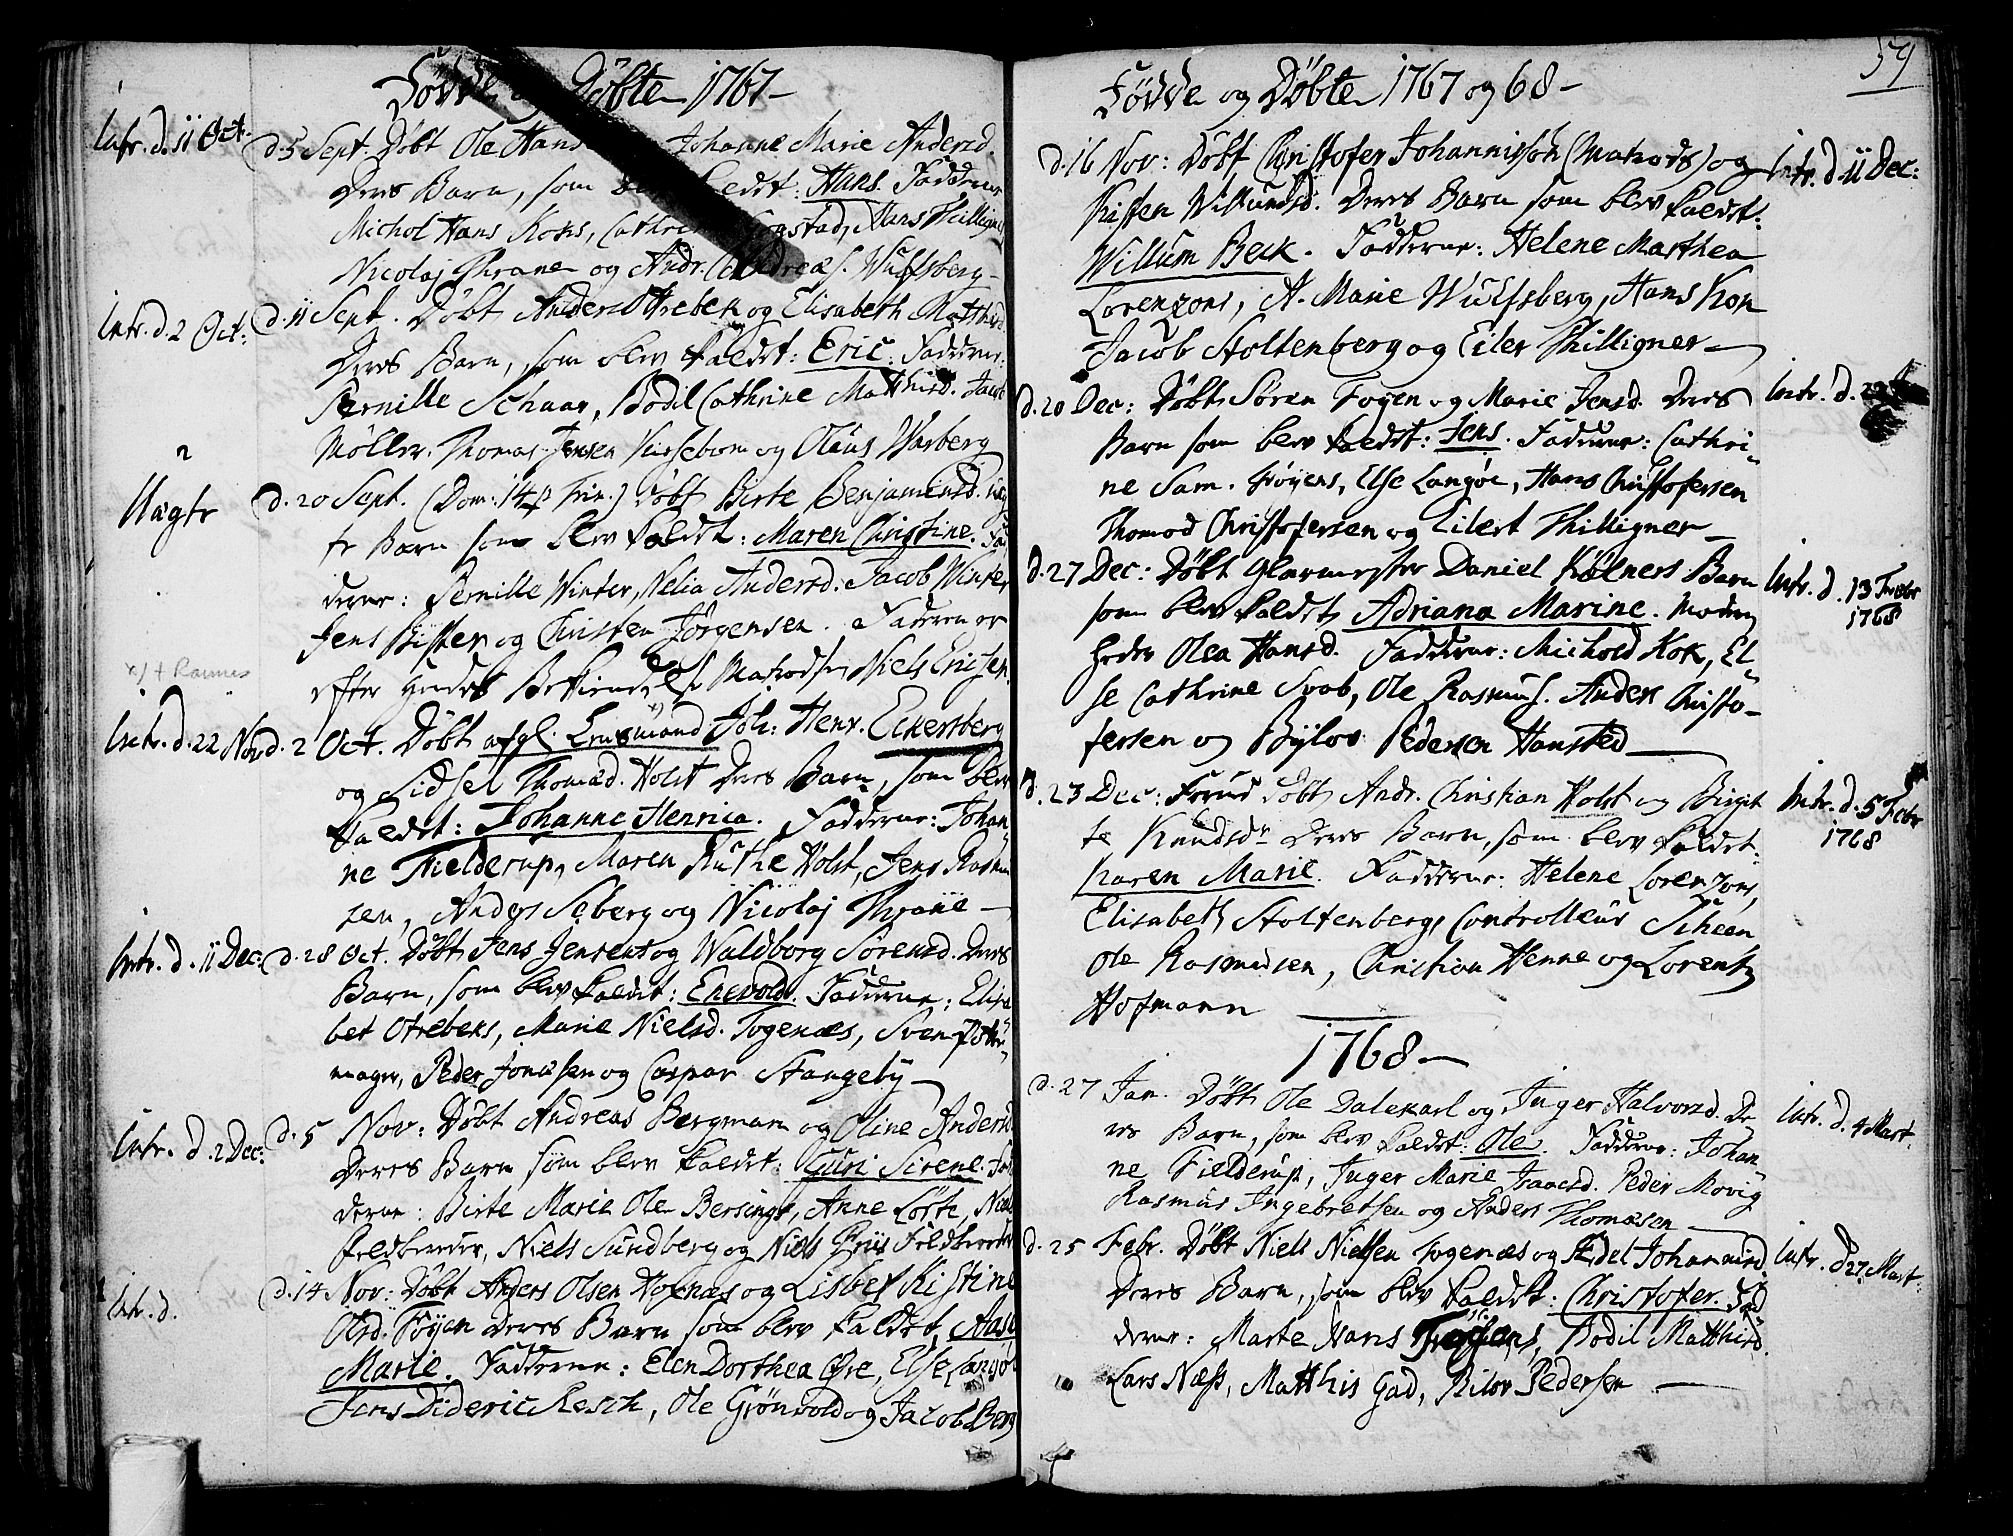 Födde og Döbte 1767
Intr. d. 11 Oct.
d. 5 Sept. Döbt Ole Hans Johanne Marie Andersd.
Deres Barn, som kaldet: Hans. Faddere
Michol Hans Koks, Cathri Hans Thilligner
Nicolaj Thrane og Andr. Wulfsberg
Intr. d. 2 Oct:
d. 11 Sept. Döbt Anders Otreben og Elisabeth Matthisd
Deres Barn, som blev kaldet: Eric. Faddere:
Pernille Schaar, Bodil Cathrine Matthisd. Jacob
Möller. Thomas Jensen og Olaus Warberg
Uægte
d. 20 Sept. (Dom: 14 p Trin.) Döbt Birte Benjaminsd. uæg
te Barn som blev kaldet: Maren Christine. Fad
derne: Pernille Winter, Nelia Andersd. Jacob Winter
Jens Bister og Christen Jörgensen. Faderen er
efter hendes Matrods Niels Ericsen.
x) + Rannes
Intr. d. 22 Nov
d. 2 Oct. Döbt afgl. Lensmand Joh: Henr. Eckersberg
og Sidsel Thomasd. Holst Deres Barn, som blev
kaldet: Johanne Henrica. Faddere: Johan-
ne Fielderup, Maren Ruthe Holst, Jens Rasmu
sen, Anders Seberg og Nicolaj Thrane
Intr. d. 11 Dec:
d. 28 Oct. Döbt Jens Jensen og Waldborg Sörensd. Deres
Barn, som blev kaldet: Enevold. Faddere: Elisa
bet Otrebens, Marie Nielsd. Togenæs, Sven Potte-
mager, Peder Jonassen og Caspar Stangeby
Intr. d 2 Dec:
d. 5 Nov: Döbt Andreas Bergman og Oline Andersd
Deres Barn som blev kaldet: Guri Sirene. Fad
derne: Birte Marie Ole Bersings, Anne Löste,
Feldbereder, Niels Sundberg og Niels Friis Feldbereder
Intr. d.
d. 14 Nov: Döbt Anders Olsen Hofnæs og Lisbet Kistine
Olsd. Föyen Deres Barn som blev kaldet, Aase
Marie. Faddere: Elen Dorthea Öre, Else Langöe
Jens Dideric Resch, Ole Grönvold og Jacob Berg
59
Födde og Döbte 1767 og 68
d. 16 Nov: Döbt Christofer Johannissön (Matrods) og
Intr. d 11 Dec:
Kisten Willumsd. Deres Barn som blev kaldet:
Willum Beck. Faddere: Helene Marthea
Lorenzons, A. Marie Wulfsberg, Hans Kon
Jacob Stoltenberg og Eiler Thilligner
d. 20 Dec: Döbt Sören Fogen og Marie Jensd. Deres
Intr. d. 22
Barn som blev kaldet: Jens. Faddere: Cathri-
ne Sam. Fröyens, Else Langöe, Hans Christofersen
Thomod Christofersen og Eilert Thilligner
d. 27 Dec: Döbt Glarmester Daniel Kölners Barn
Intr. d. 13 Febr
1768
som blev kaldet Adriana Marine. Moder
heder Olea Hansd. Faddere: Michold Kok, El-
se Cathrine Svob, Ole Rasmus. Anders Christo-
fersen og Bylov Pedersen Hansted
d. 23 Dec: Forud Döbt Andr. Christian Holst og Birgit
Intr. d. 5 Febr
1768
te Knudsd Deres Barn, som blev kaldet:
Karen Marie. Faddere: Helene Lorenzons,
Elisabeth Stoltenberg, Controlleur Scheen
Ole Rasmusen, Christian Henne og Lorentz
Hofmann
1768
d. 27 Jan. Döbt Ole Dalekarl og Inger Halvorsd. De
Intr. d. 4 Mart.
res Barn, som blev kaldet: Ole. Faddere: Johan-
ne Fielderup, Inger Marie Isaacsd. Peder Movig
Rasmus Ingebretsen og Anders Thomæsen
d. 25 Febr. Döbt Niels Nielsen Togenæs og Edel Johannisd.
Intr. d 27 Mart:
Deres Barn, som blev kaldet: Christofer. Fad
derne: Marte Hans Fröyens, Bodil Matthisd.
Lars Næss, Matthis Gad, Bilov Pedersen